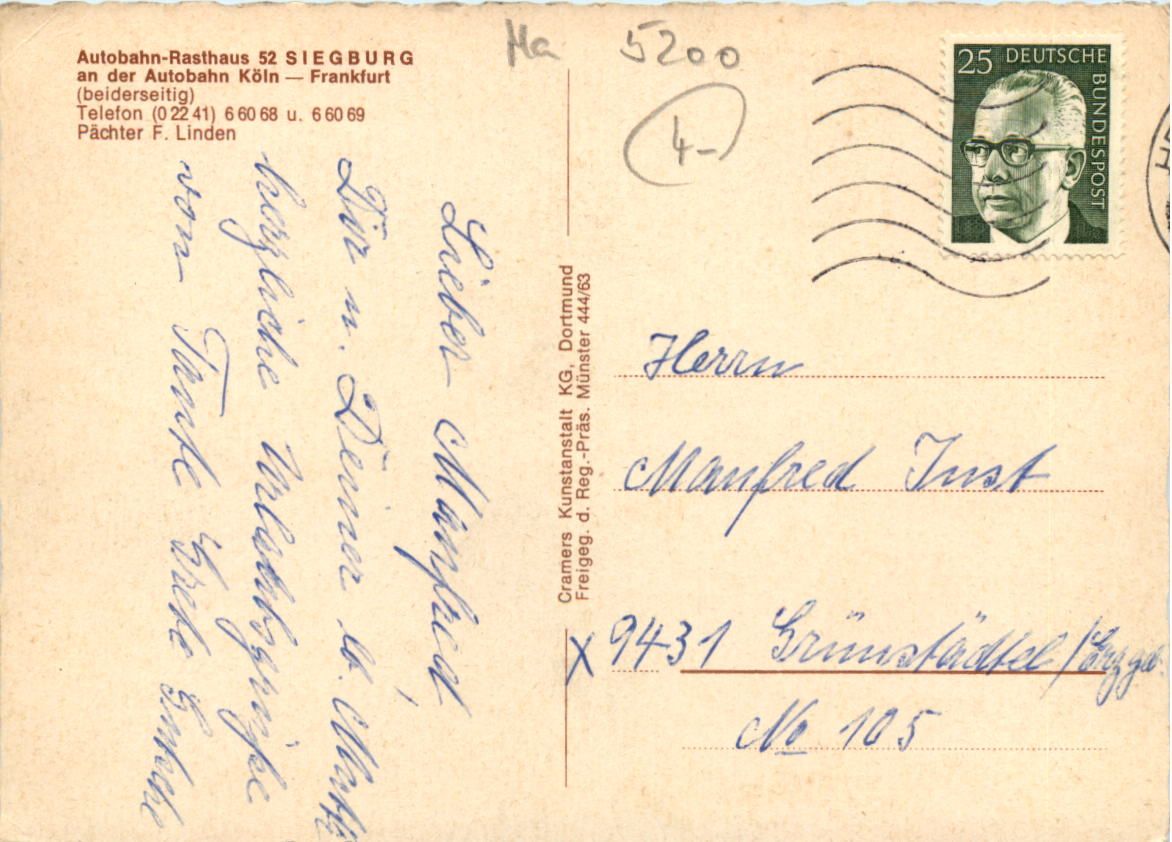 Autobahn-Rasthaus 52 SIEGBURG
an der Autobahn Köln — Frankfurt
(beiderseitig)
Telefon (0 22 41) 6 60 68 u. 6 60 69
Pächter F. Linden
Ma 5200
4-
25 DEUTSCHE
BUNDESPOST
Lieber Manfred!
Dir u. Deiner lb. Mutti
herzliche Urlaubsgrüße
von Tante Grete
Cramers Kunstanstalt KG, Dortmund
Freigeg. d. Reg.-Präs. Münster 444/63
Herrn
Manfred Just
x 9431 Grünstädtel/Erzgeb.
No 105